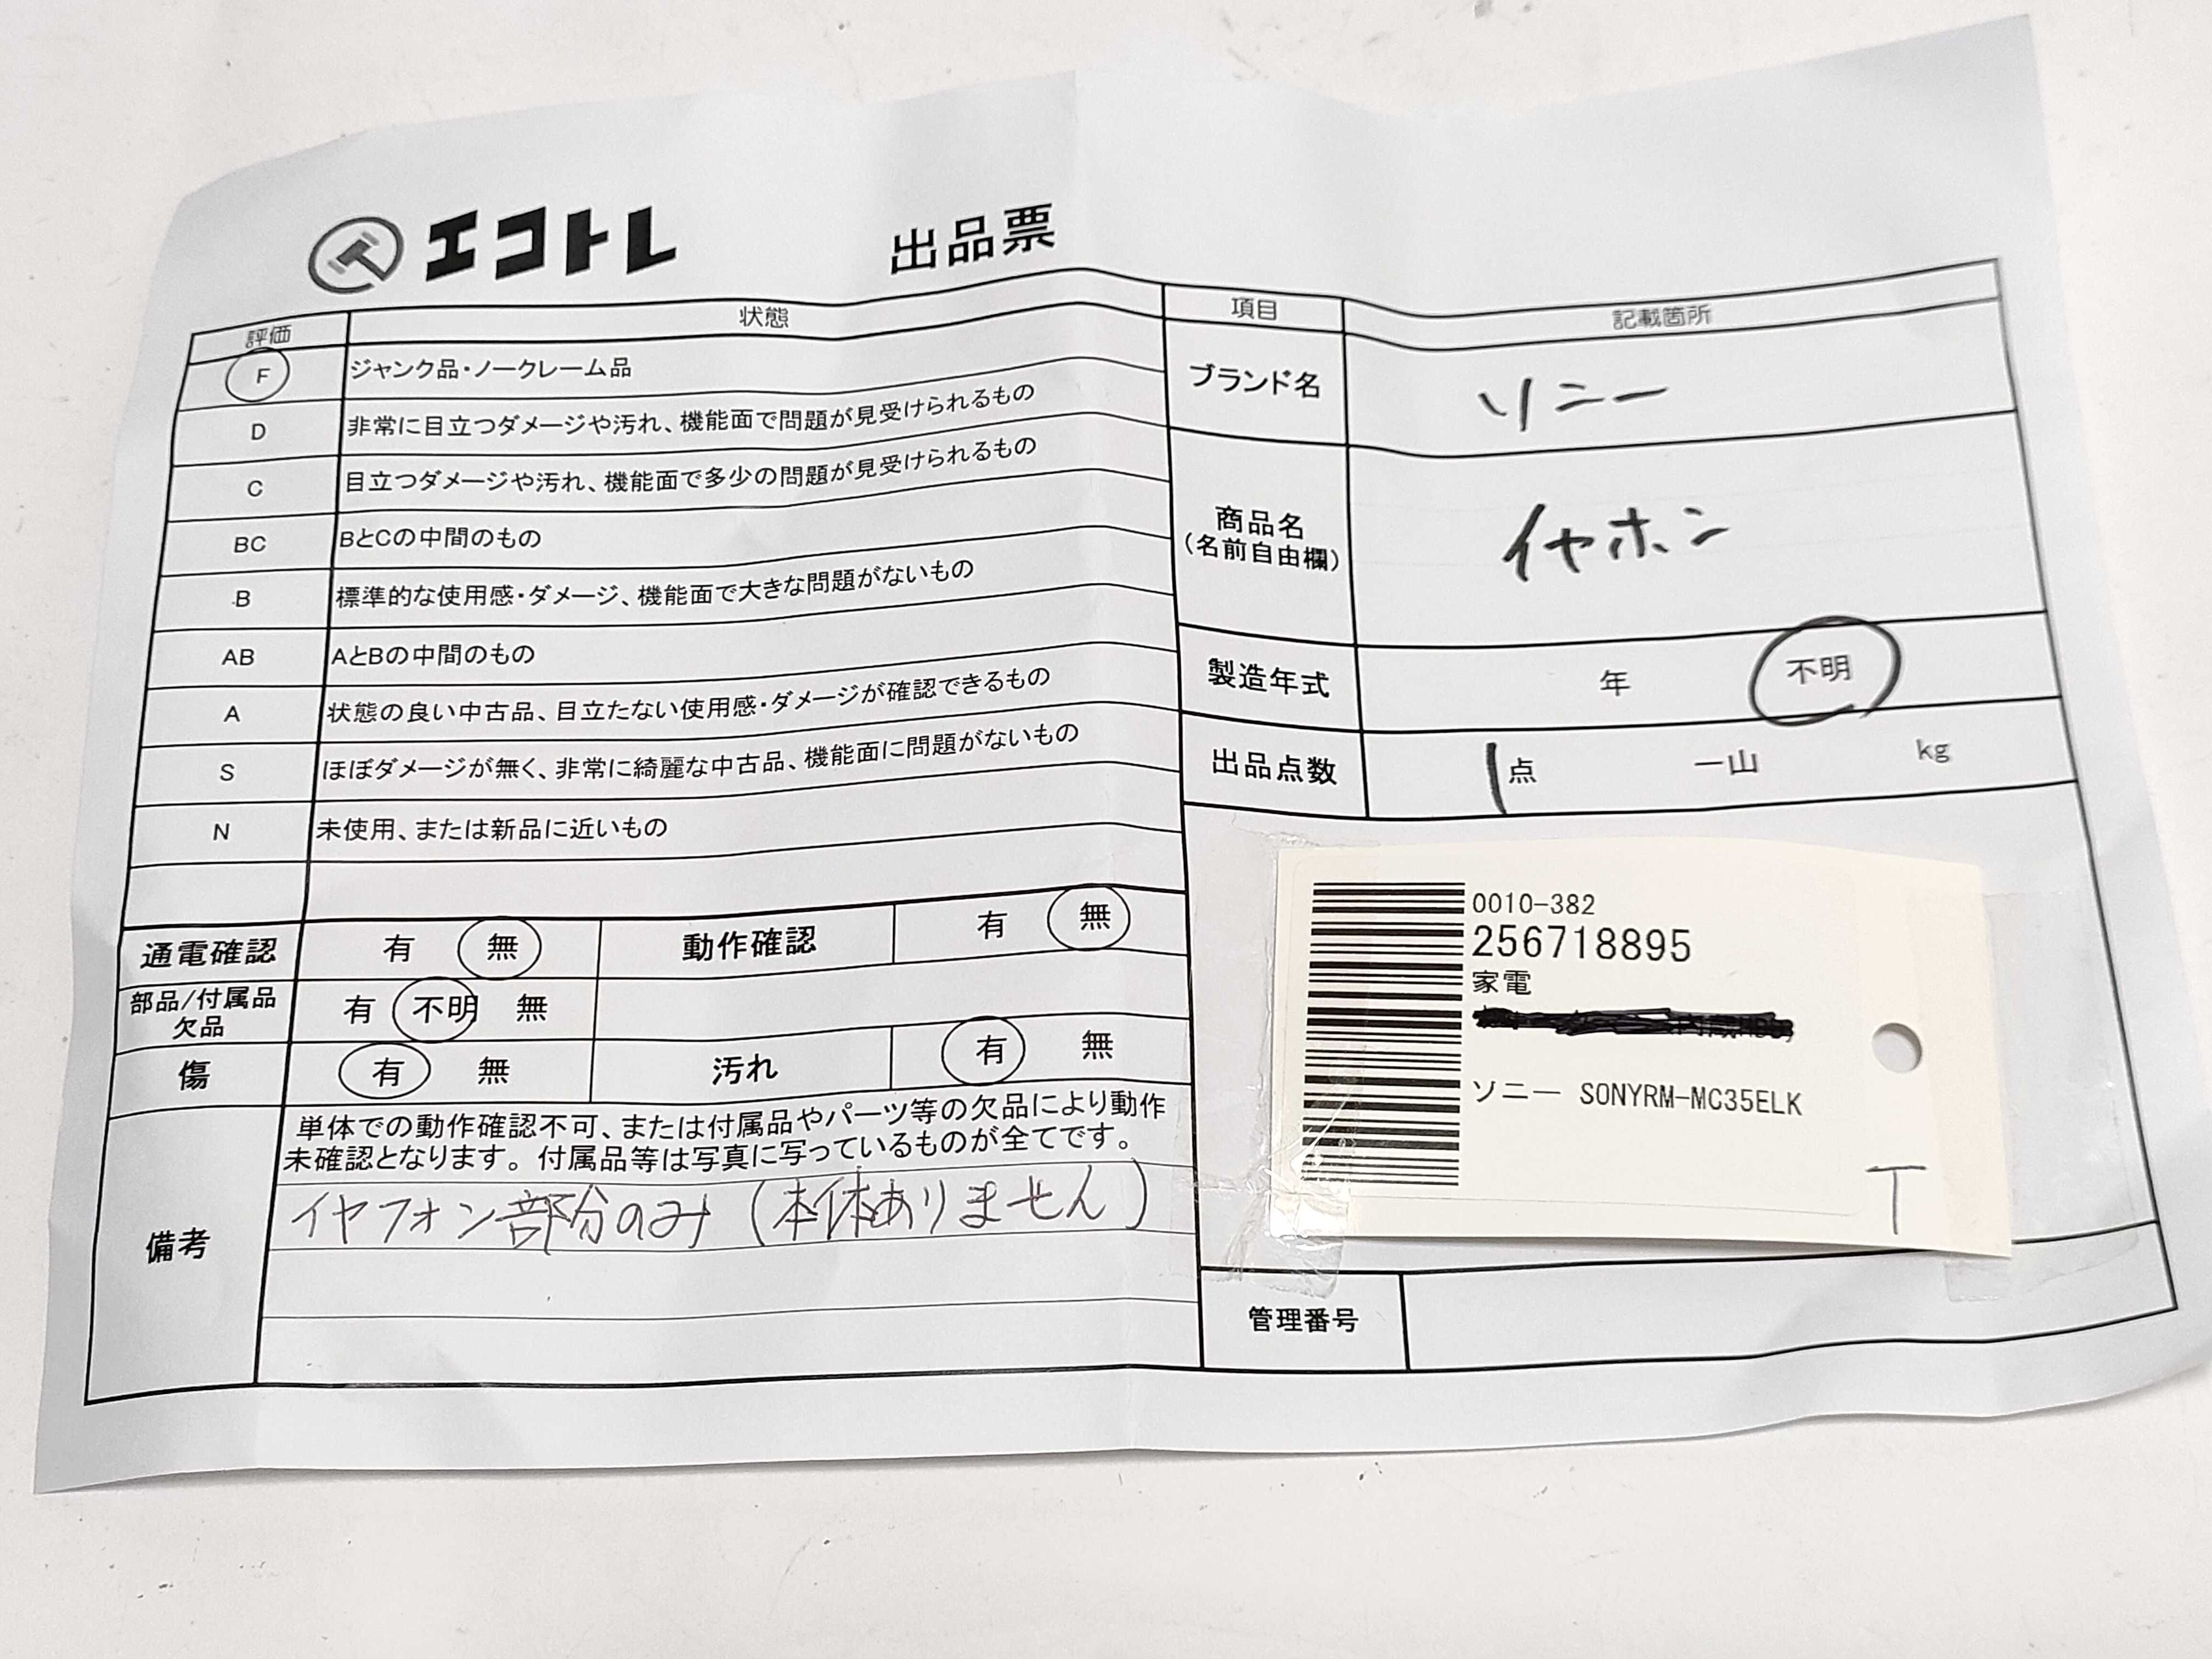 エコトレ 出品票
評価 状態
F ジャンク品・ノークレーム品
D 非常に目立つダメージや汚れ、機能面で問題が見受けられるもの
C 目立つダメージや汚れ、機能面で多少の問題が見受けられるもの
BC BとCの中間のもの
B 標準的な使用感・ダメージ、機能面で大きな問題がないもの
AB AとBの中間のもの
A 状態の良い中古品、目立たない使用感・ダメージが確認できるもの
S ほぼダメージが無く、非常に綺麗な中古品、機能面に問題がないもの
N 未使用、または新品に近いもの
通電確認 有 無 動作確認 有 無
部品/付属品
欠品 有 不明 無
傷 有 無 汚れ 有 無
備考
単体での動作確認不可、または付属品やパーツ等の欠品により動作
未確認となります。付属品等は写真に写っているものが全てです。
イヤフォン部分のみ (本体ありません)
項目 記載箇所
ブランド名 ソニー
商品名
(名前自由欄) イヤホン
製造年式 年 不明
出品点数 1点 一山 kg
0010-382
256718895
家電
ソニー SONYRM-MC35ELK
T
管理番号